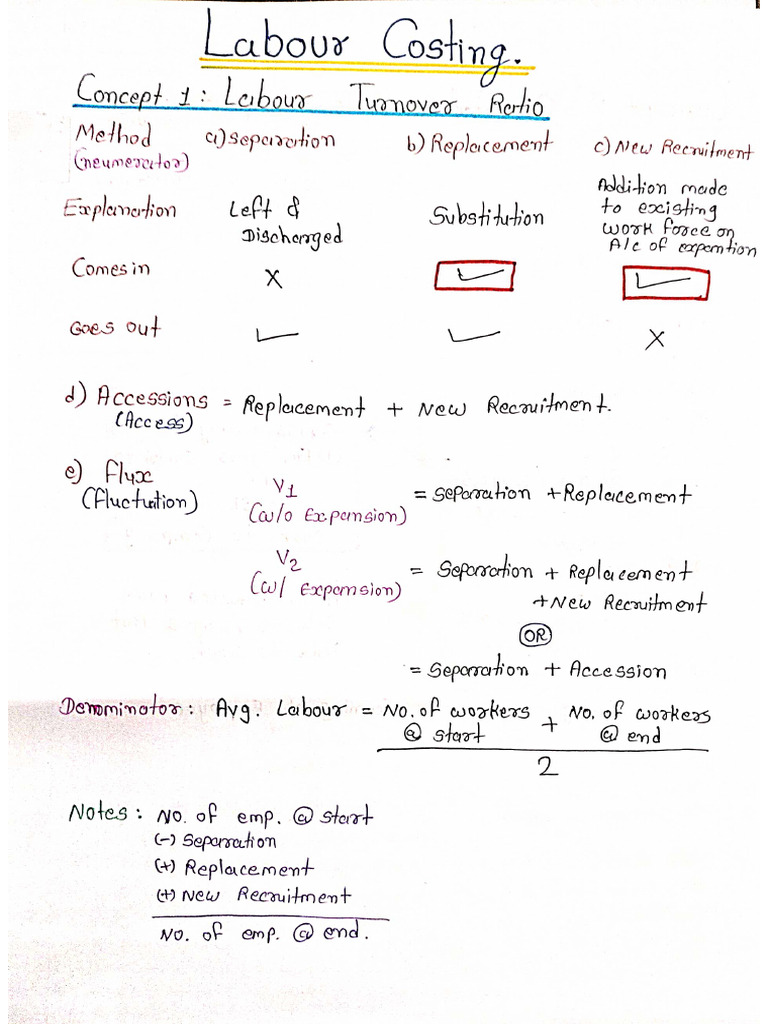 Labour Costing.
Concept 1: Labour Turnover Ratio
Method a) Separation b) Replacement c) New Recruitment
(neumerator)
Explanation Left & Discharged Substitution Addition made to existing work force on A/c of expantion
Comes in x ✓ ✓
Goes out ✓ ✓ x
d) Accessions = Replacement + New Recruitment.
(Access)
e) Flux V1 = Separation + Replacement
(Fluctuation) (w/o Expansion)
V2 = Separation + Replacement
(w/ Expansion) + New Recruitment
OR
= Separation + Accession
Denominator: Avg. Labour = No. of workers @ start + No. of workers @ end
2
Notes: No. of emp. @ start
(-) Separation
(+) Replacement
(+) New Recruitment
No. of emp. @ end.